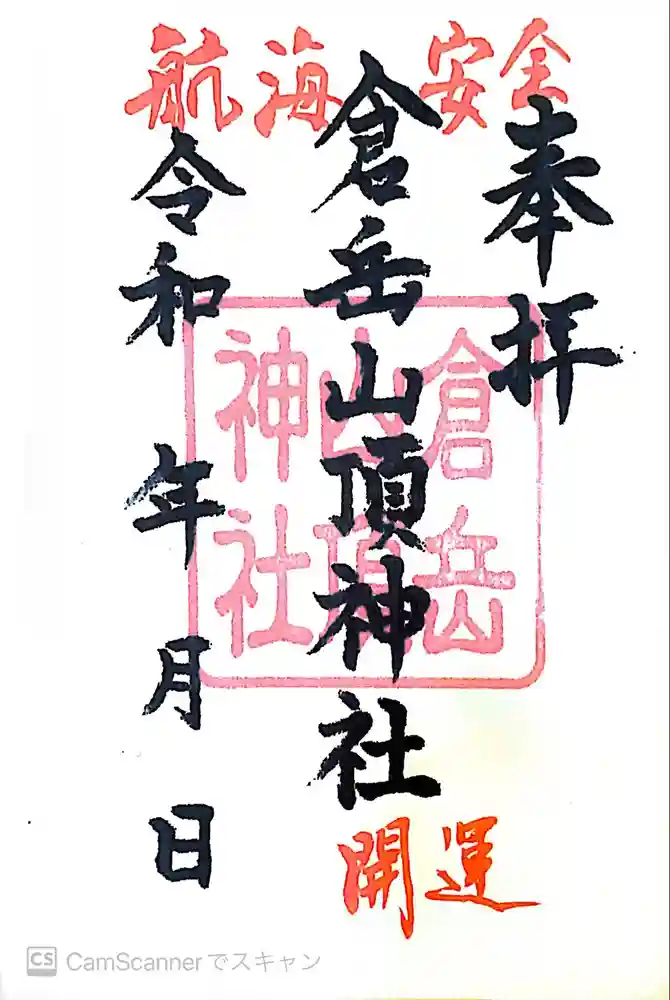 航海 安全
奉拝
倉岳山頂神社
令和 年 月 日
倉岳
山頂
神社
開運
CS CamScannerでスキャン